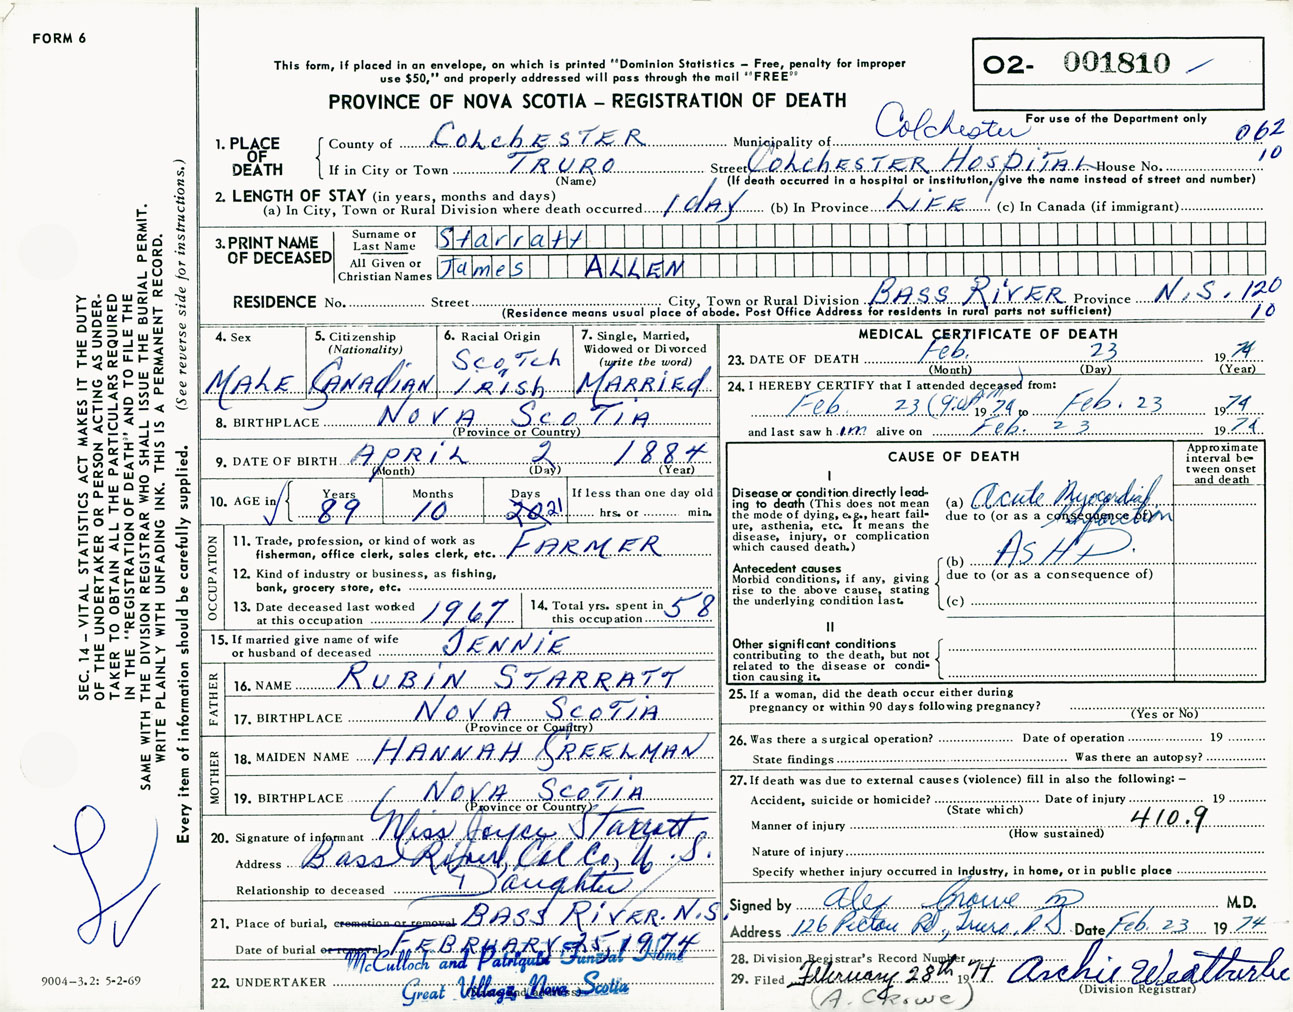 FORM 6
This form, if placed in an envelope, on which is printed "Dominion Statistics – Free, penalty for improper
use $50," and properly addressed will pass through the mail "FREE"
PROVINCE OF NOVA SCOTIA – REGISTRATION OF DEATH
O2- 001810
For use of the Department only
062
10
1. PLACE OF DEATH
County of COLCHESTER Municipality of Colchester
If in City or Town TRURO Street COLCHESTER HOSPITAL House No.
(Name) (If death occurred in a hospital or institution, give the name instead of street and number)
2. LENGTH OF STAY (in years, months and days)
(a) In City, Town or Rural Division where death occurred 1 day (b) In Province LIFE (c) In Canada (if immigrant)
3. PRINT NAME OF DECEASED
Surname or Last Name Starratt
All Given or Christian Names James ALLEN
RESIDENCE No. Street City, Town or Rural Division BASS RIVER Province N.S. 120
10
(Residence means usual place of abode. Post Office Address for residents in rural parts not sufficient)
4. Sex
MALE
5. Citizenship
(Nationality)
CANADIAN
6. Racial Origin
SCOTCH
IRISH
7. Single, Married,
Widowed or Divorced
(write the word)
MARRIED
8. BIRTHPLACE NOVA SCOTIA
(Province or Country)
9. DATE OF BIRTH APRIL 2 1884
(Month) (Day) (Year)
10. AGE in
Years Months Days If less than one day old
89 10 20 21 hrs. or min.
OCCUPATION
11. Trade, profession, or kind of work as
fisherman, office clerk, sales clerk, etc. FARMER
12. Kind of industry or business, as fishing,
bank, grocery store, etc.
13. Date deceased last worked
at this occupation 1967
14. Total yrs. spent in
this occupation 58
15. If married give name of wife
or husband of deceased JENNIE
FATHER
16. NAME RUBIN STARRATT
17. BIRTHPLACE NOVA SCOTIA
(Province or Country)
MOTHER
18. MAIDEN NAME HANNAH CREELMAN
19. BIRTHPLACE NOVA SCOTIA
(Province or Country)
20. Signature of informant Miss Joyce Starratt
Address Bass River, Col Co, N.S.
Relationship to deceased Daughter
21. Place of burial, cremation or removal BASS RIVER. N.S.
Date of burial or removal FEBRUARY 25, 1974
McCulloch and Patriquin Funeral Home
22. UNDERTAKER Great Village, Nova Scotia
MEDICAL CERTIFICATE OF DEATH
23. DATE OF DEATH Feb. 23 1974
(Month) (Day) (Year)
24. I HEREBY CERTIFY that I attended deceased from:
Feb. 23 1974 to Feb. 23 1974
and last saw him alive on Feb. 23 1974
CAUSE OF DEATH
Approximate
interval be-
tween onset
and death
I
Disease or condition directly lead-
ing to death (This does not mean
the mode of dying, e.g., heart fail-
ure, asthenia, etc. It means the
disease, injury, or complication
which caused death.)
(a) Acute Myocardial
due to (or as a consequence of)
Infarction
Antecedent causes
Morbid conditions, if any, giving
rise to the above cause, stating
the underlying condition last.
(b) ASHD.
due to (or as a consequence of)
(c)
II
Other significant conditions
contributing to the death, but not
related to the disease or condi-
tion causing it.
25. If a woman, did the death occur either during
pregnancy or within 90 days following pregnancy?
(Yes or No)
26. Was there a surgical operation? Date of operation 19
State findings Was there an autopsy?
27. If death was due to external causes (violence) fill in also the following: –
Accident, suicide or homicide? Date of injury 19
(State which)
Manner of injury 410.9
(How sustained)
Nature of injury
Specify whether injury occurred in Industry, in home, or in public place
Signed by Alex Crowe M.D.
Address 126 Pictou Rd., Truro, N.S. Date Feb 23 1974
28. Division Registrar's Record Number
29. Filed February 28th 1974 Archie Weatherbe
(A. CROWE) (Division Registrar)
SEC. 14 – VITAL STATISTICS ACT MAKES IT THE DUTY
OF THE UNDERTAKER OR PERSON ACTING AS UNDER-
TAKER TO OBTAIN ALL THE PARTICULARS REQUIRED
IN THE "REGISTRATION OF DEATH" AND TO FILE THE
SAME WITH THE DIVISION REGISTRAR WHO SHALL ISSUE THE BURIAL PERMIT.
WRITE PLAINLY WITH UNFADING INK. THIS IS A PERMANENT RECORD.
Every item of information should be carefully supplied. (See reverse side for instructions.)
9004-3.2: 5-2-69